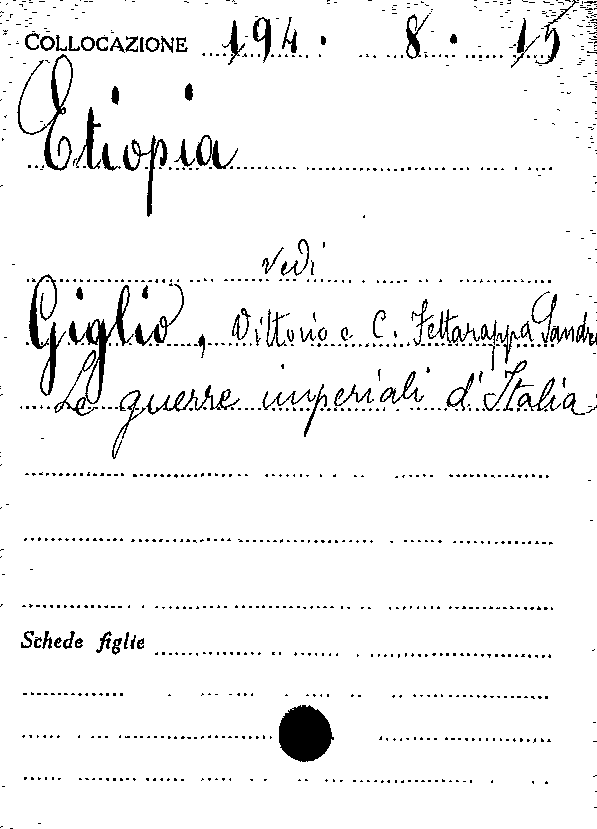 COLLOCAZIONE 194. 8. 15
Etiopia
vedi
Giglio, Vittorio e C. Fettarappa Sandri
Le guerre imperiali d'Italia
Schede figlie